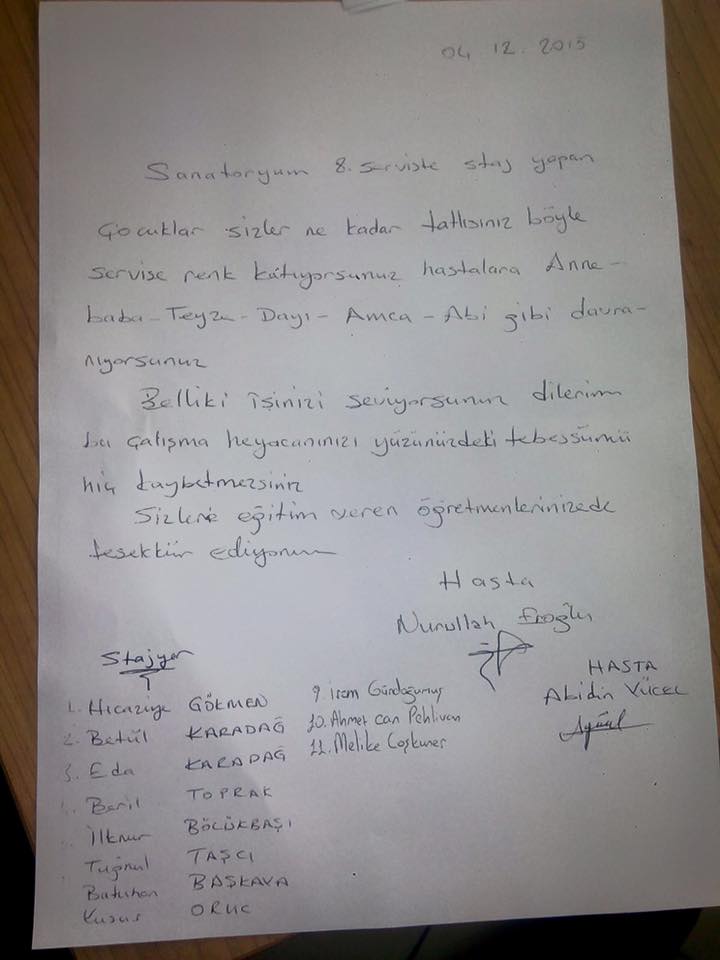 04 12. 2015
Sanatoryum 8. serviste staj yapan
Çocuklar sizler ne kadar tatlısınız böyle
servise renk katıyorsunuz hastalara Anne-
baba-Teyze-Dayı-Amca-Abi gibi davra-
nıyorsunuz
Belliki işinizi seviyorsunuz dilerim
bu çalışma heyacanınızı yüzünüzdeki tebessümü
hiç kaybetmezsiniz
Sizlere eğitim veren öğretmenlerinizede
teşekkür ediyorum
Hasta
Nurullah Eroğlu
HASTA
Abidin YÜCEL
Stajyer
1. Hicaziye GÖKMEN
2. Betül KARADAĞ
3. Eda KARADAĞ
Beril TOPRAK
İlknur BÖLÜKBAŞI
Tuğrul TAŞCI
Batuhan BAŞKAVA
ORUC
9. İrem Gündoğumuş
10. Ahmet can Pehlivan
11. Melike Coşkuner